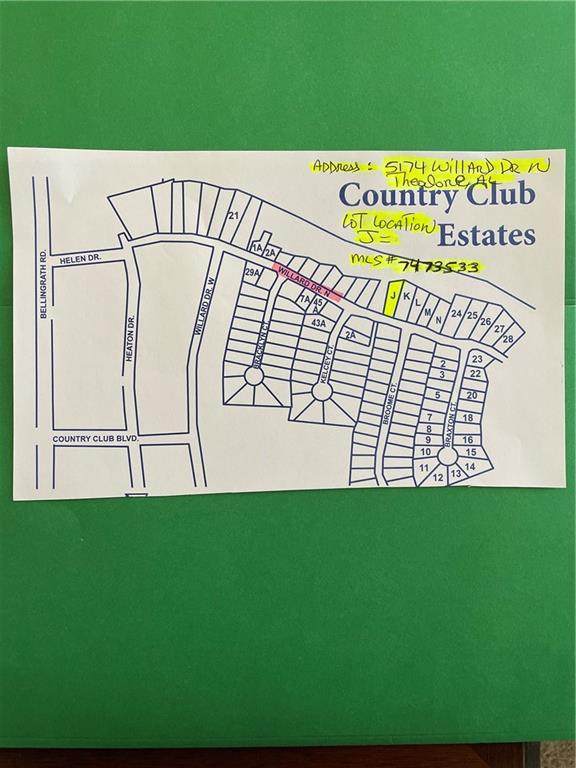 ADDRESS: 5174 WILLARD DR N
Theodore, AL
Country Club
LOT LOCATION
J=
Estates
MLS # 7473533
21
1A 2A
29A
WILLARD DR. N
7A 45
A
43A
2A
J K L M N 24 25 26 27 28
BELLINGRATH RD.
HELEN DR.
HEATON DR.
WILLARD DR. W
COUNTRY CLUB BLVD.
BRACKLYN CT.
KELCEY CT.
BROOME CT.
BRAXTON CT.
23
2 22
3
5 20
7 18
8
9 16
10 15
11 12 13 14